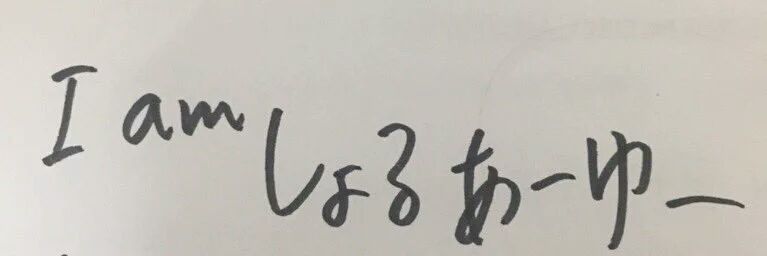 I am しょうあーゆー